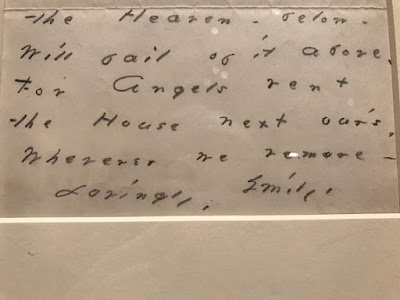 the Heaven - below -
Will fail of it above,
For Angels rent
the House next our's,
Wherever we remove -
Lovingly, Emily.